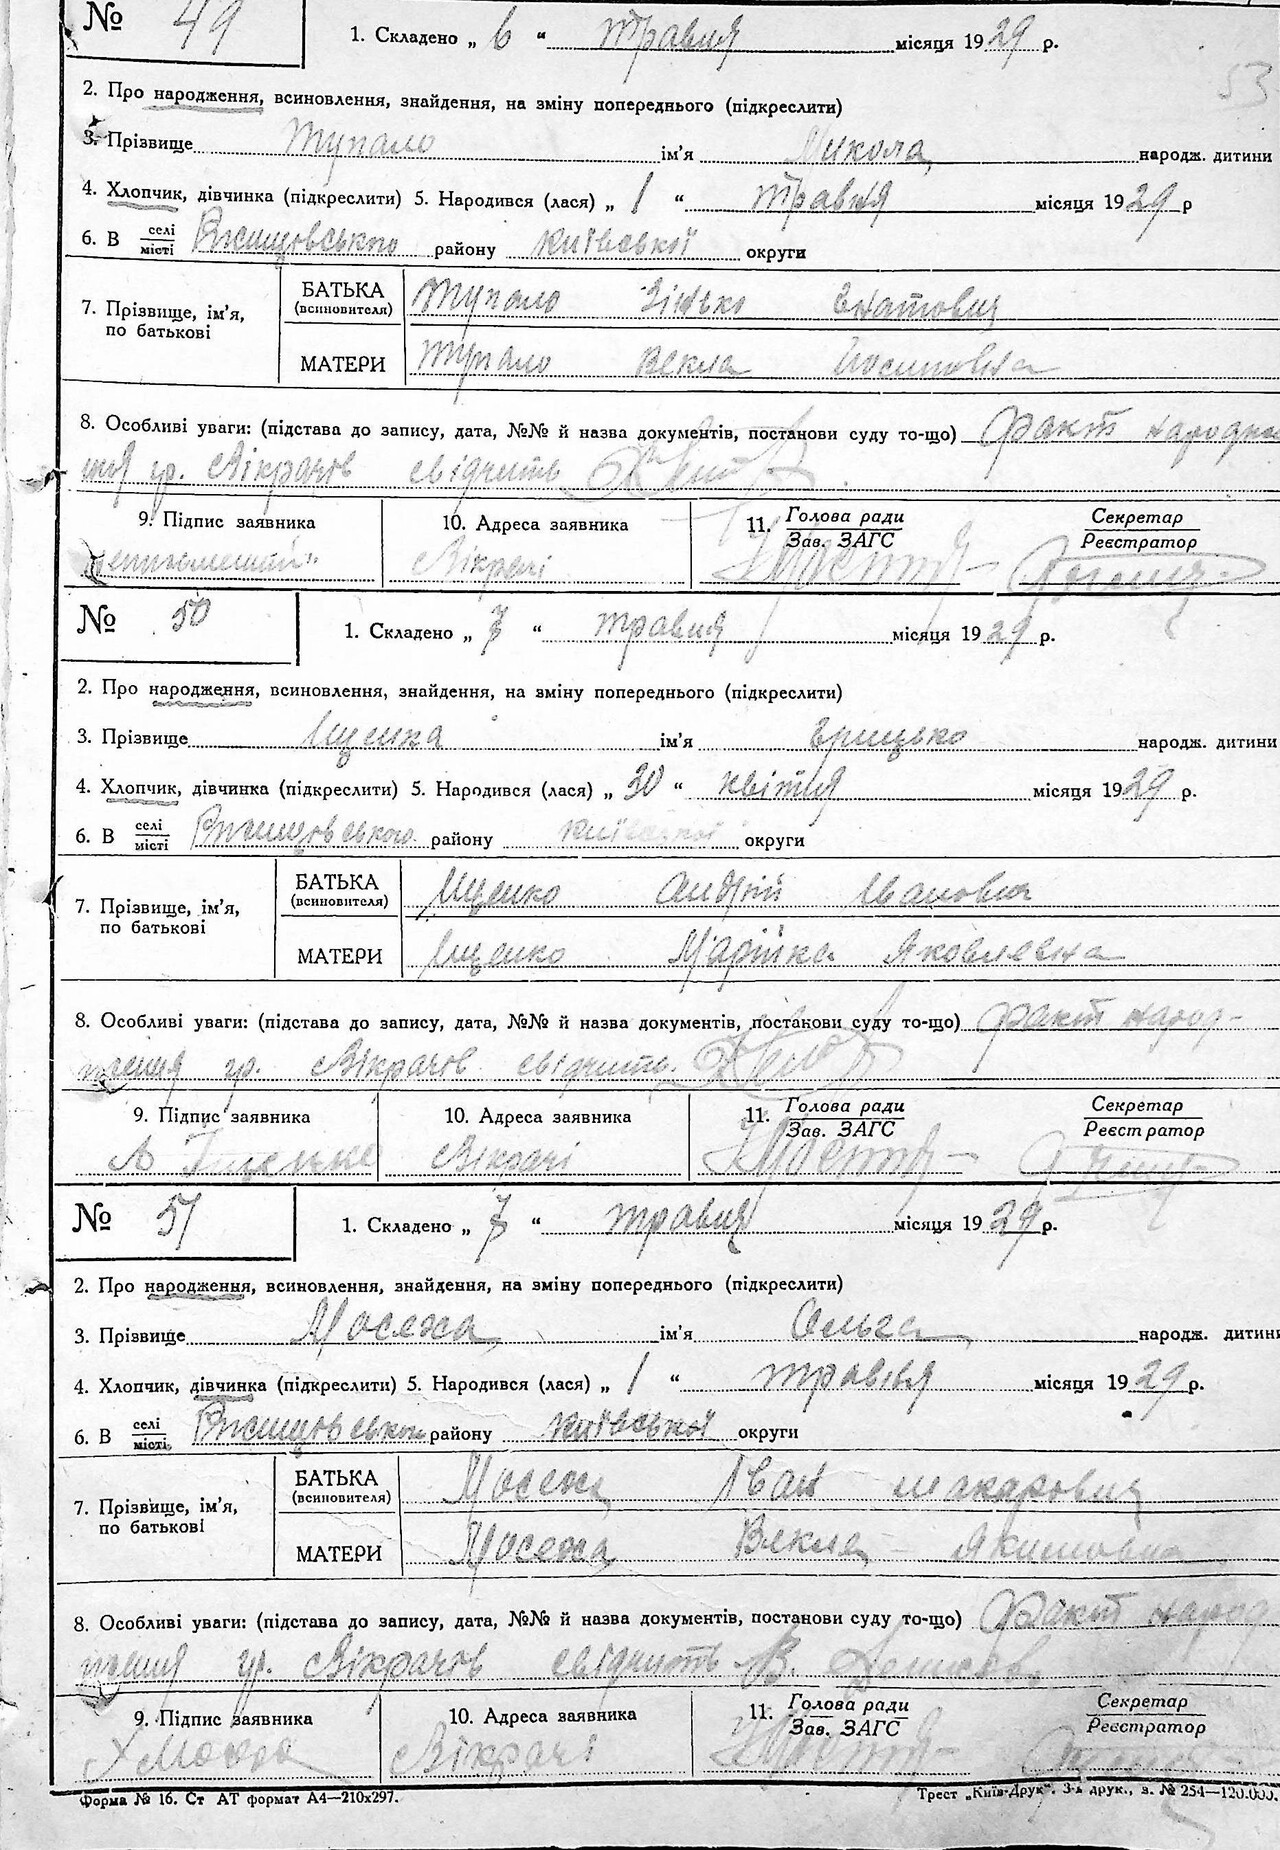 № 49
1. Складено „ 6 “ травня місяця 1929 р.
53
2. Про народження, всиновлення, знайдення, на зміну попереднього (підкреслити)
3. Прізвище Тупало ім'я Микола народж. дитини
4. Хлопчик, дівчинка (підкреслити) 5. Народився (лася) „ 1 “ травня місяця 1929 р
6. В селі місті Ржищовського району Київської округи
7. Прізвище, ім'я, по батькові
БАТЬКА (всиновителя) Тупало Зінько
МАТЕРИ Тупало Векла Йосиповна
8. Особливі уваги: (підстава до запису, дата, №№ й назва документів, постанови суду то-що) Факт народже
ння гр. Вікрачів свідчить
9. Підпис заявника 10. Адреса заявника 11. Голова ради Зав. ЗАГС Секретар Реєстратор
Вікрачі
№ 50
1. Складено „ 7 “ травня місяця 1929 р.
2. Про народження, всиновлення, знайдення, на зміну попереднього (підкреслити)
3. Прізвище Іщенка ім'я Грицько народж. дитини
4. Хлопчик, дівчинка (підкреслити) 5. Народився (лася) „ 30 “ квітня місяця 1929 р.
6. В селі місті Ржищовського району Київської округи
7. Прізвище, ім'я, по батькові
БАТЬКА (всиновителя) Іщенко Андрій Іванович
МАТЕРИ Іщенко Марійка Яковлевна
8. Особливі уваги: (підстава до запису, дата, №№ й назва документів, постанови суду то-що) Факт народ-
ження гр. Вікрачів свідчить
9. Підпис заявника 10. Адреса заявника 11. Голова ради Зав. ЗАГС Секретар Реєстратор
А Іщенко Вікрачі
№ 51
1. Складено „ 7 “ травня місяця 1929 р.
2. Про народження, всиновлення, знайдення, на зміну попереднього (підкреслити)
3. Прізвище ім'я Ольга народж. дитини
4. Хлопчик, дівчинка (підкреслити) 5. Народився (лася) „ 1 “ травня місяця 1929 р.
6. В селі місті Ржищовського району Київської округи
7. Прізвище, ім'я, по батькові
БАТЬКА (всиновителя) Іван Макарович
МАТЕРИ Векла Якимовна
8. Особливі уваги: (підстава до запису, дата, №№ й назва документів, постанови суду то-що) Факт народ
ження гр. Вікрачів свідчить
9. Підпис заявника 10. Адреса заявника 11. Голова ради Зав. ЗАГС Секретар Реєстратор
Вікрачі
Форма № 16. Ст АТ формат А4—210х297.
Трест „Київ-Друк“. 3-я друк., з. № 254—120.000.